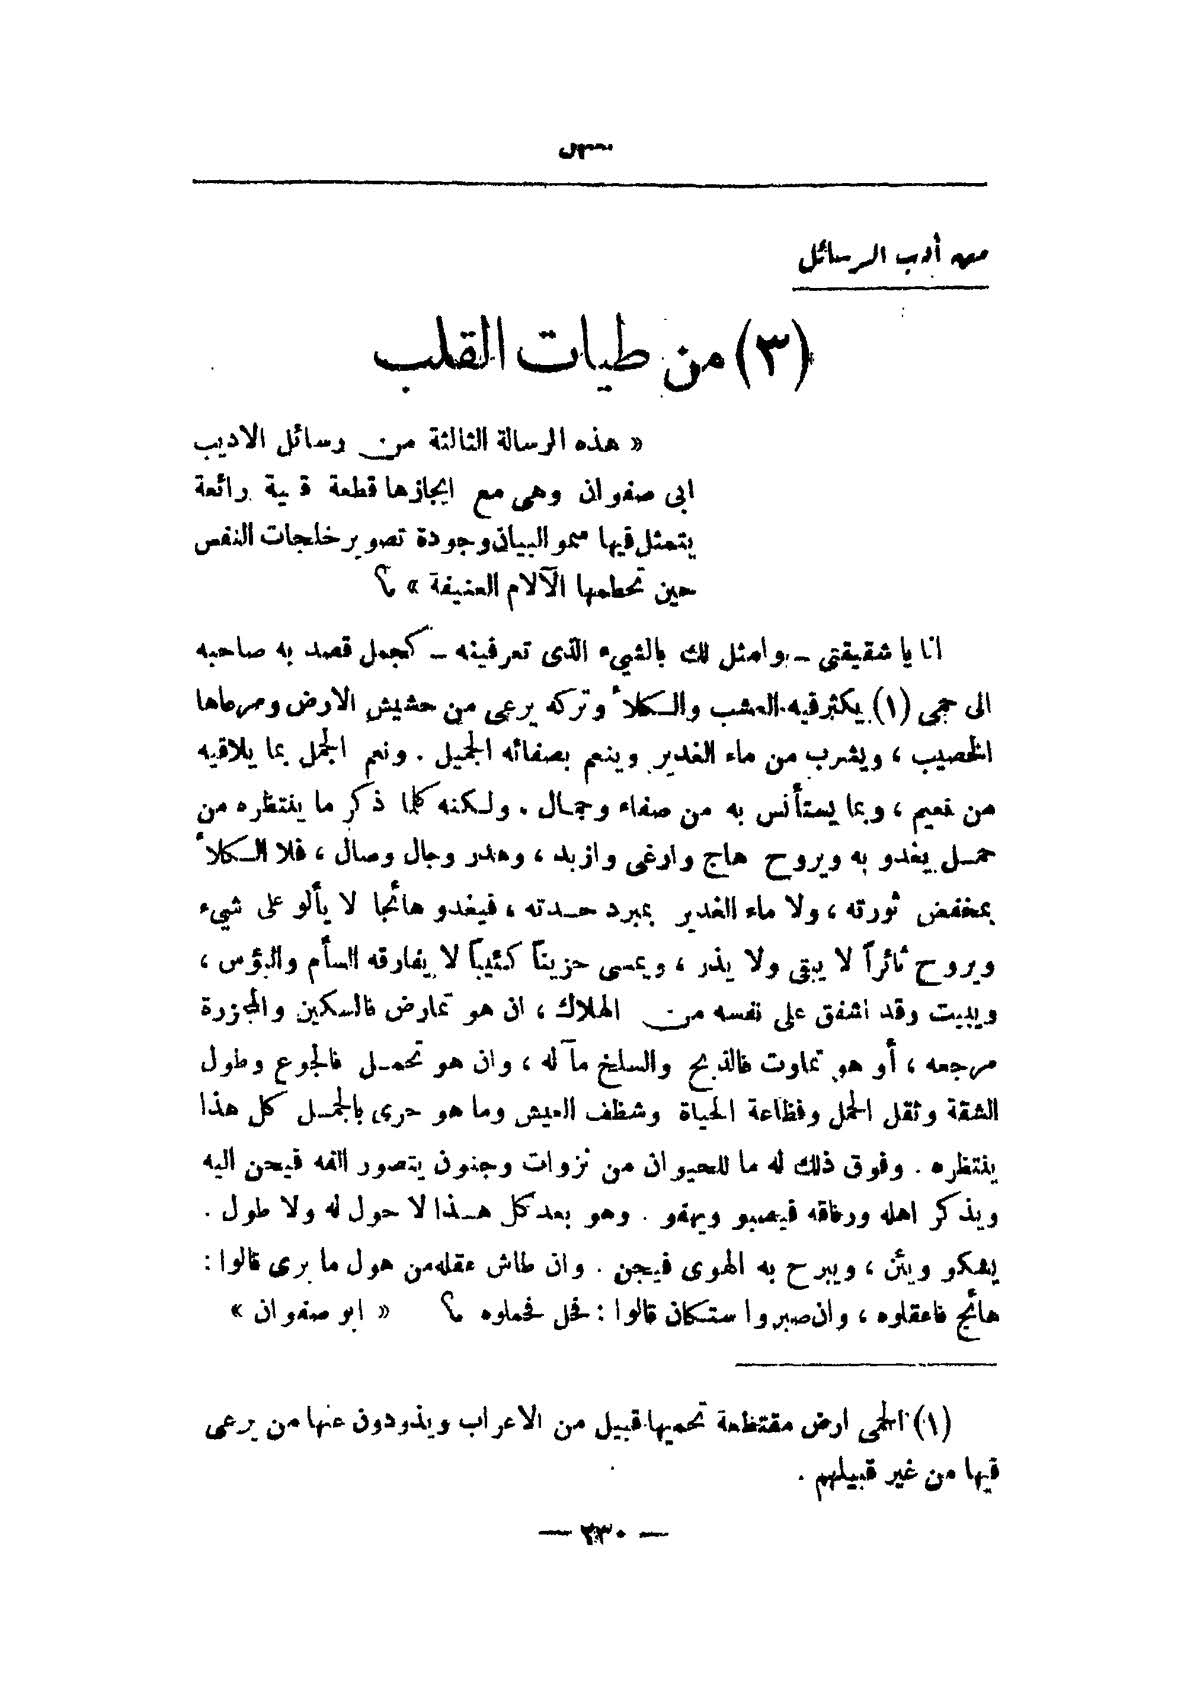 من أدب الرسائل
(٣) من طيات القلب
« هذه الرسالة الثالثة من رسائل الاديب
ابى صفوان وهى مع ايجازها قطعة فنية رائعة
يتمثل فيها سمو البيان وجودة تصوير خلجات النفس
حين تحطمها الآلام العنيفة » م؟
انا يا شقيقتى ـ وامثل لك بالشيء الذى تعرفينه ـ كجمل قصد به صاحبه
الى حمى (١) يكثر فيه العشب والكلأ وتركه يرعى من حشيش الارض ومرعاها
الخصيب ، ويشرب من ماء الغدير وينعم بصفائه الجميل . ونعم الجمل بما يلاقيه
من نعيم ، وبما يستأنس به من صفاء وجمال . ولكنه كلما ذكر ما ينتظره من
حمل يغدو به ويروح هاج وارغى وازبد ، وهدر وجال وصال ، فلا الكلأ
بمخفض ثورته ، ولا ماء الغدير بمبرد حدته ، فيغدو هائجا لا يألو على شيء
ويروح ثائراً لا يبقى ولا يذر ، ويمسى حزيناً كئيباً لا يفارقه السأم والبؤس ،
ويبيت وقد اشفق على نفسه من الهلاك ، ان هو تمارض فالسكين والمجزرة
مرجعه ، أو هو تماوت فالذبح والسلخ مآ له ، وان هو تحمل فالجوع وطول
الشقة وثقل الحمل وفظاعة الحياة وشظف العيش وما هو حرى بالجمل كل هذا
ينتظره . وفوق ذلك له ما للحيوان من نزوات وجنون يتصور الفه فيحن اليه
ويذكر اهله ورفاقه فيصبو ويهفو . وهو بعد كل هذا لا حول له ولا طول .
يشكو ويئن ، ويبرح به الهوى فيجن . وان طاش عقله من هول ما يرى قالوا :
هائج فاعقلوه ، وان صبر واستكان قالوا : فحل فحملوه م؟ « ابو صفوان »
(١) الحمى ارض مقتطعة تحميها قبيل من الاعراب ويذودون عنها من يرعى
فيها من غير قبيلهم .
— ٢٣٠ —